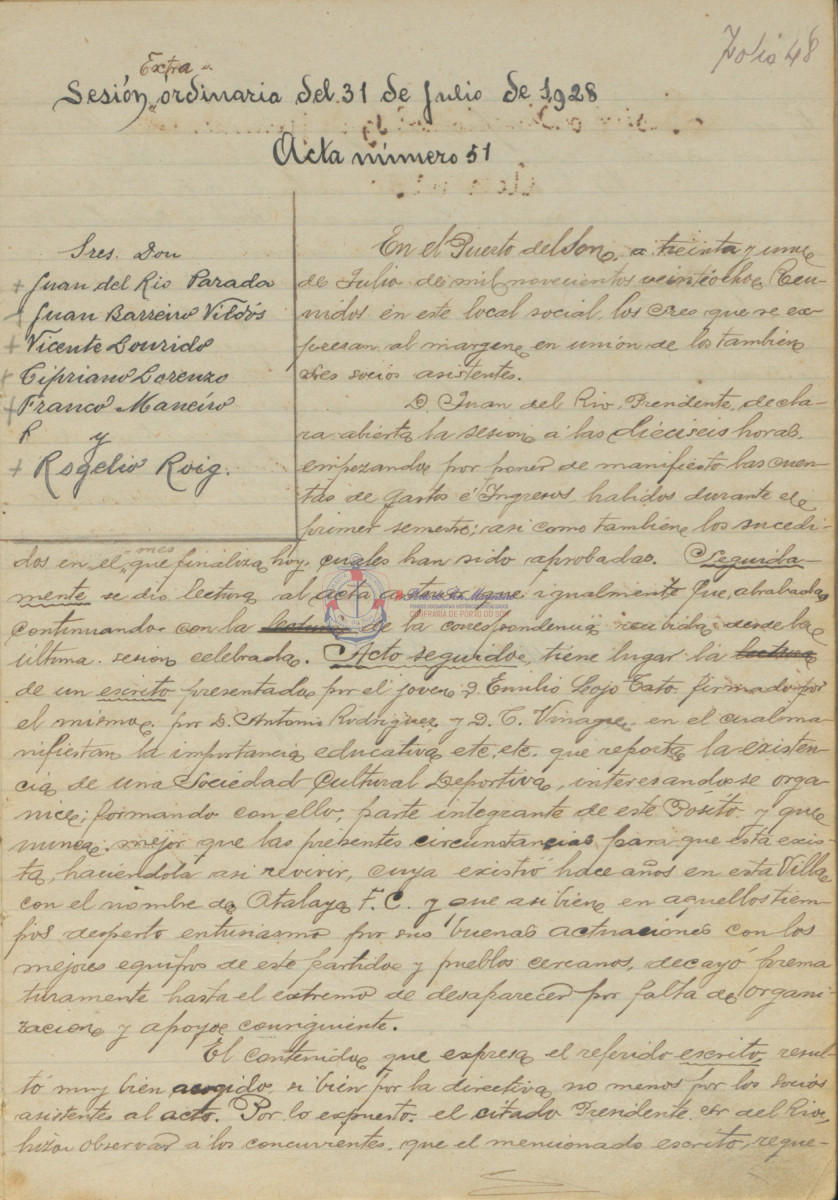 Folio 48
Extra
Sesión, ordinaria del 31 de Julio de 1928
Acta número 51
Sres. Don
Juan del Rio Parada
Juan Barreiro Vidós
Vicente Lourido
Cipriano Lorenzo
Franco Maneiro
P y
Rogelio Roig.
En el Puerto del Son, a treinta y uno
de Julio de mil novecientos veintiocho, Reu-
nidos en este local social, los Sres que se ex-
presan al margen, en unión de los tambien
Sres socios asistentes.
D. Juan del Rio, Presidente, decla-
ra abierta la sesion, á las dieciseis horas,
empezando por poner de manifiesto las cuen-
tas de Gastos é Ingresos, habidos durante el
primer semestre; asi como tambien los sucedi-
dos en el mes que finaliza hoy, cuales han sido aprobadas. Seguida-
mente se dio lectura al acta anterior que igualmente fue, abrabada,
continuando con la lectura de la correspondencia recibida desde la
última sesion celebrada. Acto seguido, tiene lugar la lectura
de un escrito presentado por el joven D. Emilio Lojo Tato firmado por
el mismo, por D. Antonio Rodriguez y D. C. Vinagre, en el cual ma-
nifiestan la importancia educativa, etc. etc. que reporta la existen-
cia de una Sociedad Cultural Deportiva, interesandose orga-
nice; formando con ello, parte integrante de este Pósito y que
nunca mejor que las presentes circunstancias para que esta exis-
ta, haciéndola asi revivir, cuya existió hace años en esta Villa
con el nombre de Atalaya F.C. y que asi bien, en aquellos tiem-
pos desperto entusiasmo por sus buenas actuaciones con los
mejores equipos de este partido y pueblos cercanos, decayó prema
turamente hasta el extremo de desaparecer por falta de organi-
zacion y apoyo consiguiente.
El contenido que expresa el referido escrito, resul-
tó muy bien acogido, si bien por la directiva no menos por los socios
asistentes al acto. Por lo expuesto, el citado Presidente Sr del Rio,
hizo observar a los concurrentes, que el mencionado escrito, reque-
COFRARIA DE PORTO DO SON